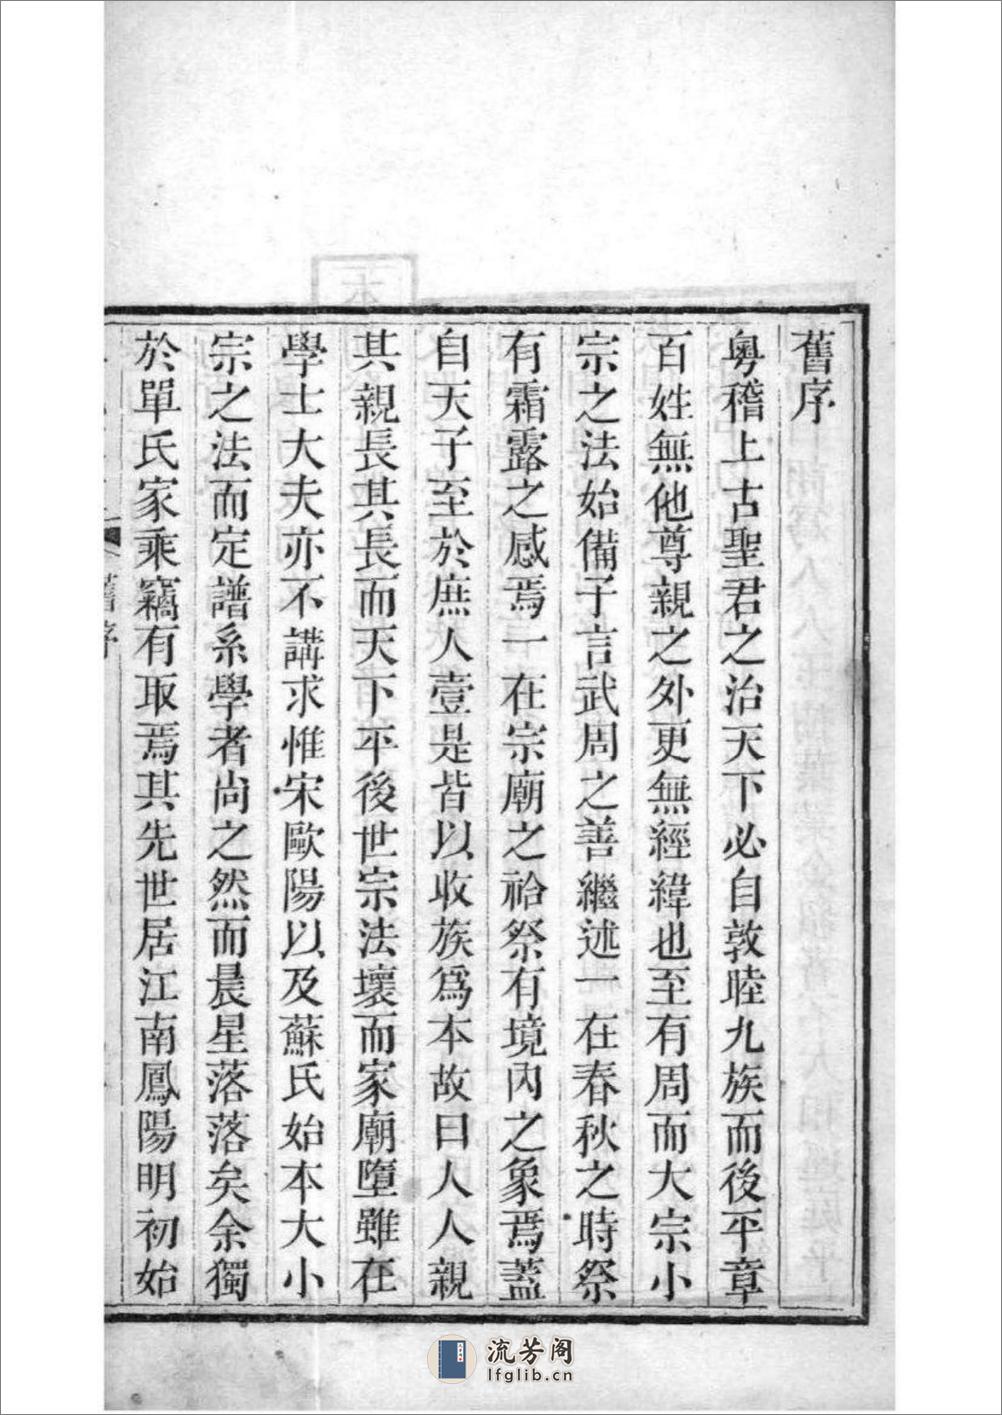 舊序
粵稽上古聖君之治天下必自敦睦九族而後平章
百姓無他尊親之外更無經緯也至有周而大宗小
宗之法始備子言武周之善繼述一在春秋之時祭
有霜露之感焉一在宗廟之祫祭有境內之象焉蓋
自天子至於庶人壹是皆以收族爲本故曰人人親
其親長其長而天下平後世宗法壞而家廟墮雖在
學士大夫亦不講求惟宋歐陽以及蘇氏始本大小
宗之法而定譜系學者尚之然而晨星落落矣余獨
於單氏家乘竊有取焉其先世居江南鳳陽明初始
舊序
流芳阁
lfglib.cn